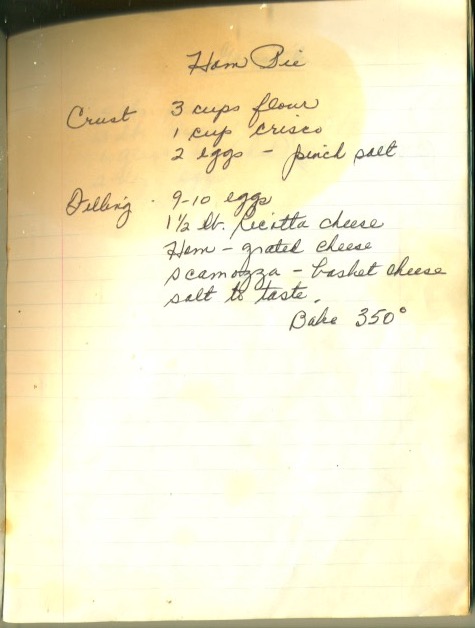 Ham Pie
Crust 3 cups flour
1 cup crisco
2 eggs - pinch salt
Filling. 9-10 eggs
1½ lb. Ricotta cheese
Ham - grated cheese
scamozza - basket cheese
salt to taste.
Bake 350°